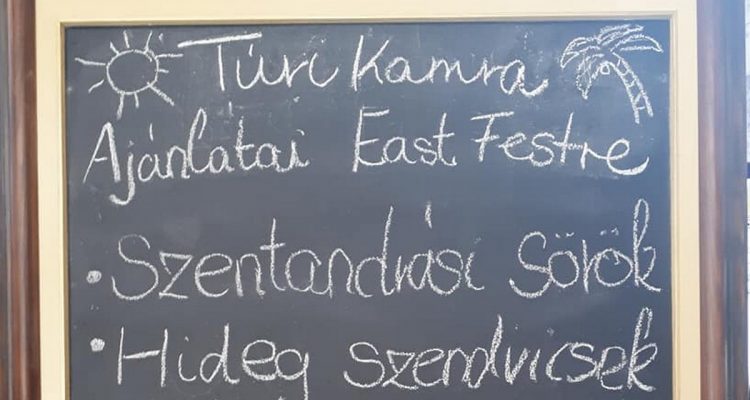 Túri Kamra
Ajánlatai East Festre
• Szentandrási Sörök
• Hideg szendvicsek